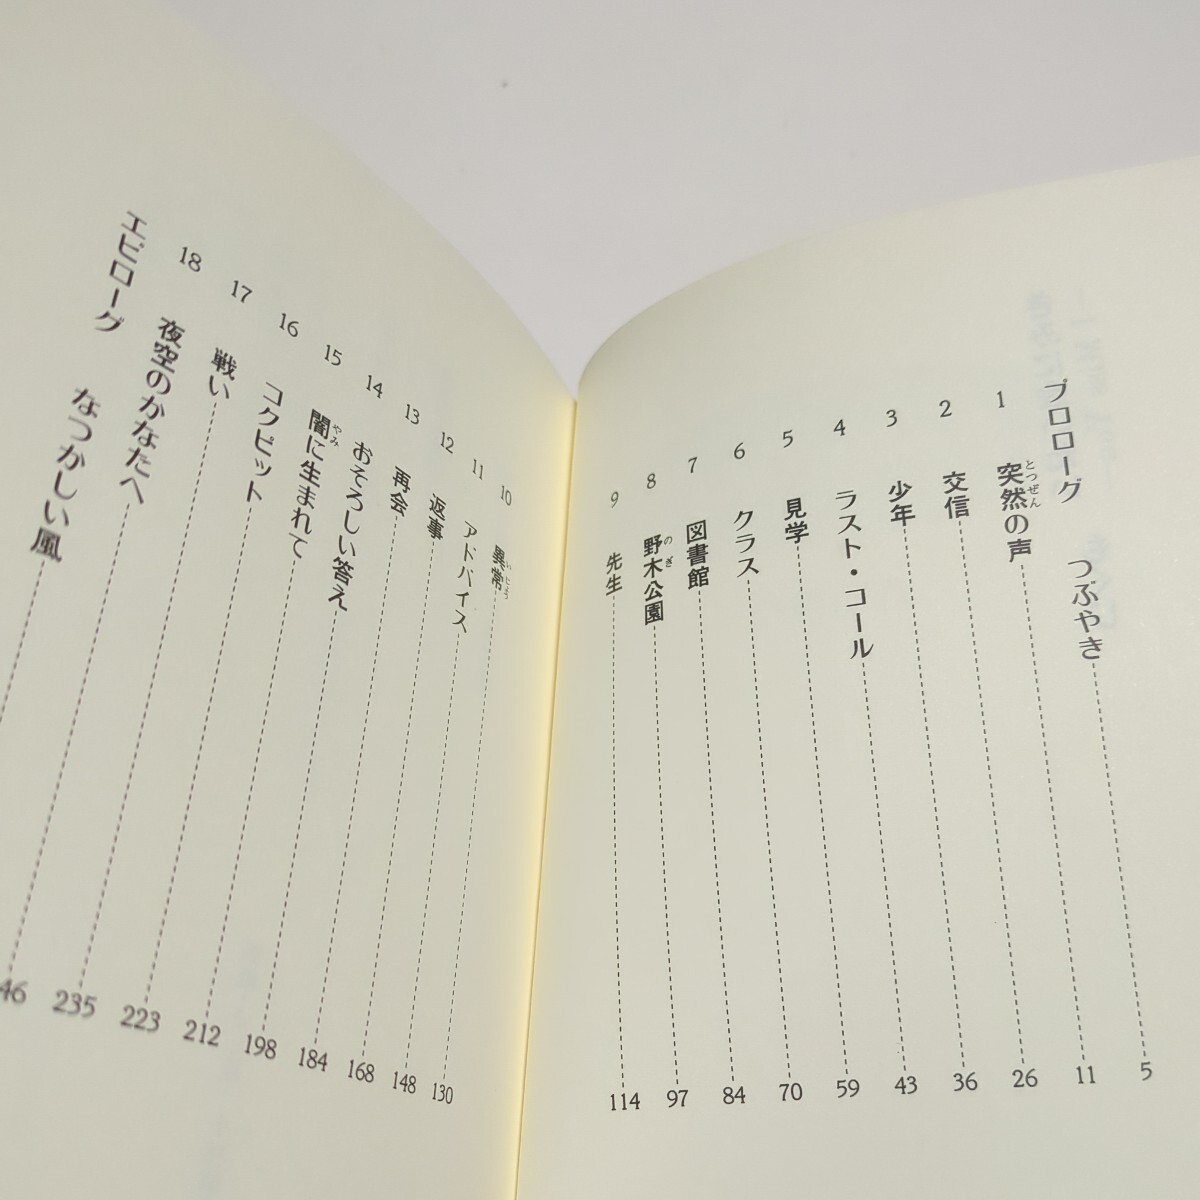 プロローグ つぶやき 5
1 突然の声 11
とつぜん
2 交信 26
3 少年 36
4 ラスト・コール 43
5 見学 59
6 クラス 70
7 図書館 84
8 野木公園 97
のぎ
9 先生 114
10 異常 130
いじょう
11 アドバイス 148
12 返事 168
13 再会 184
14 おそろしい答え 198
15 闇に生まれて 212
やみ
16 コクピット 223
17 戦い 235
18 夜空のかなたへ 46
エピローグ なつかしい風